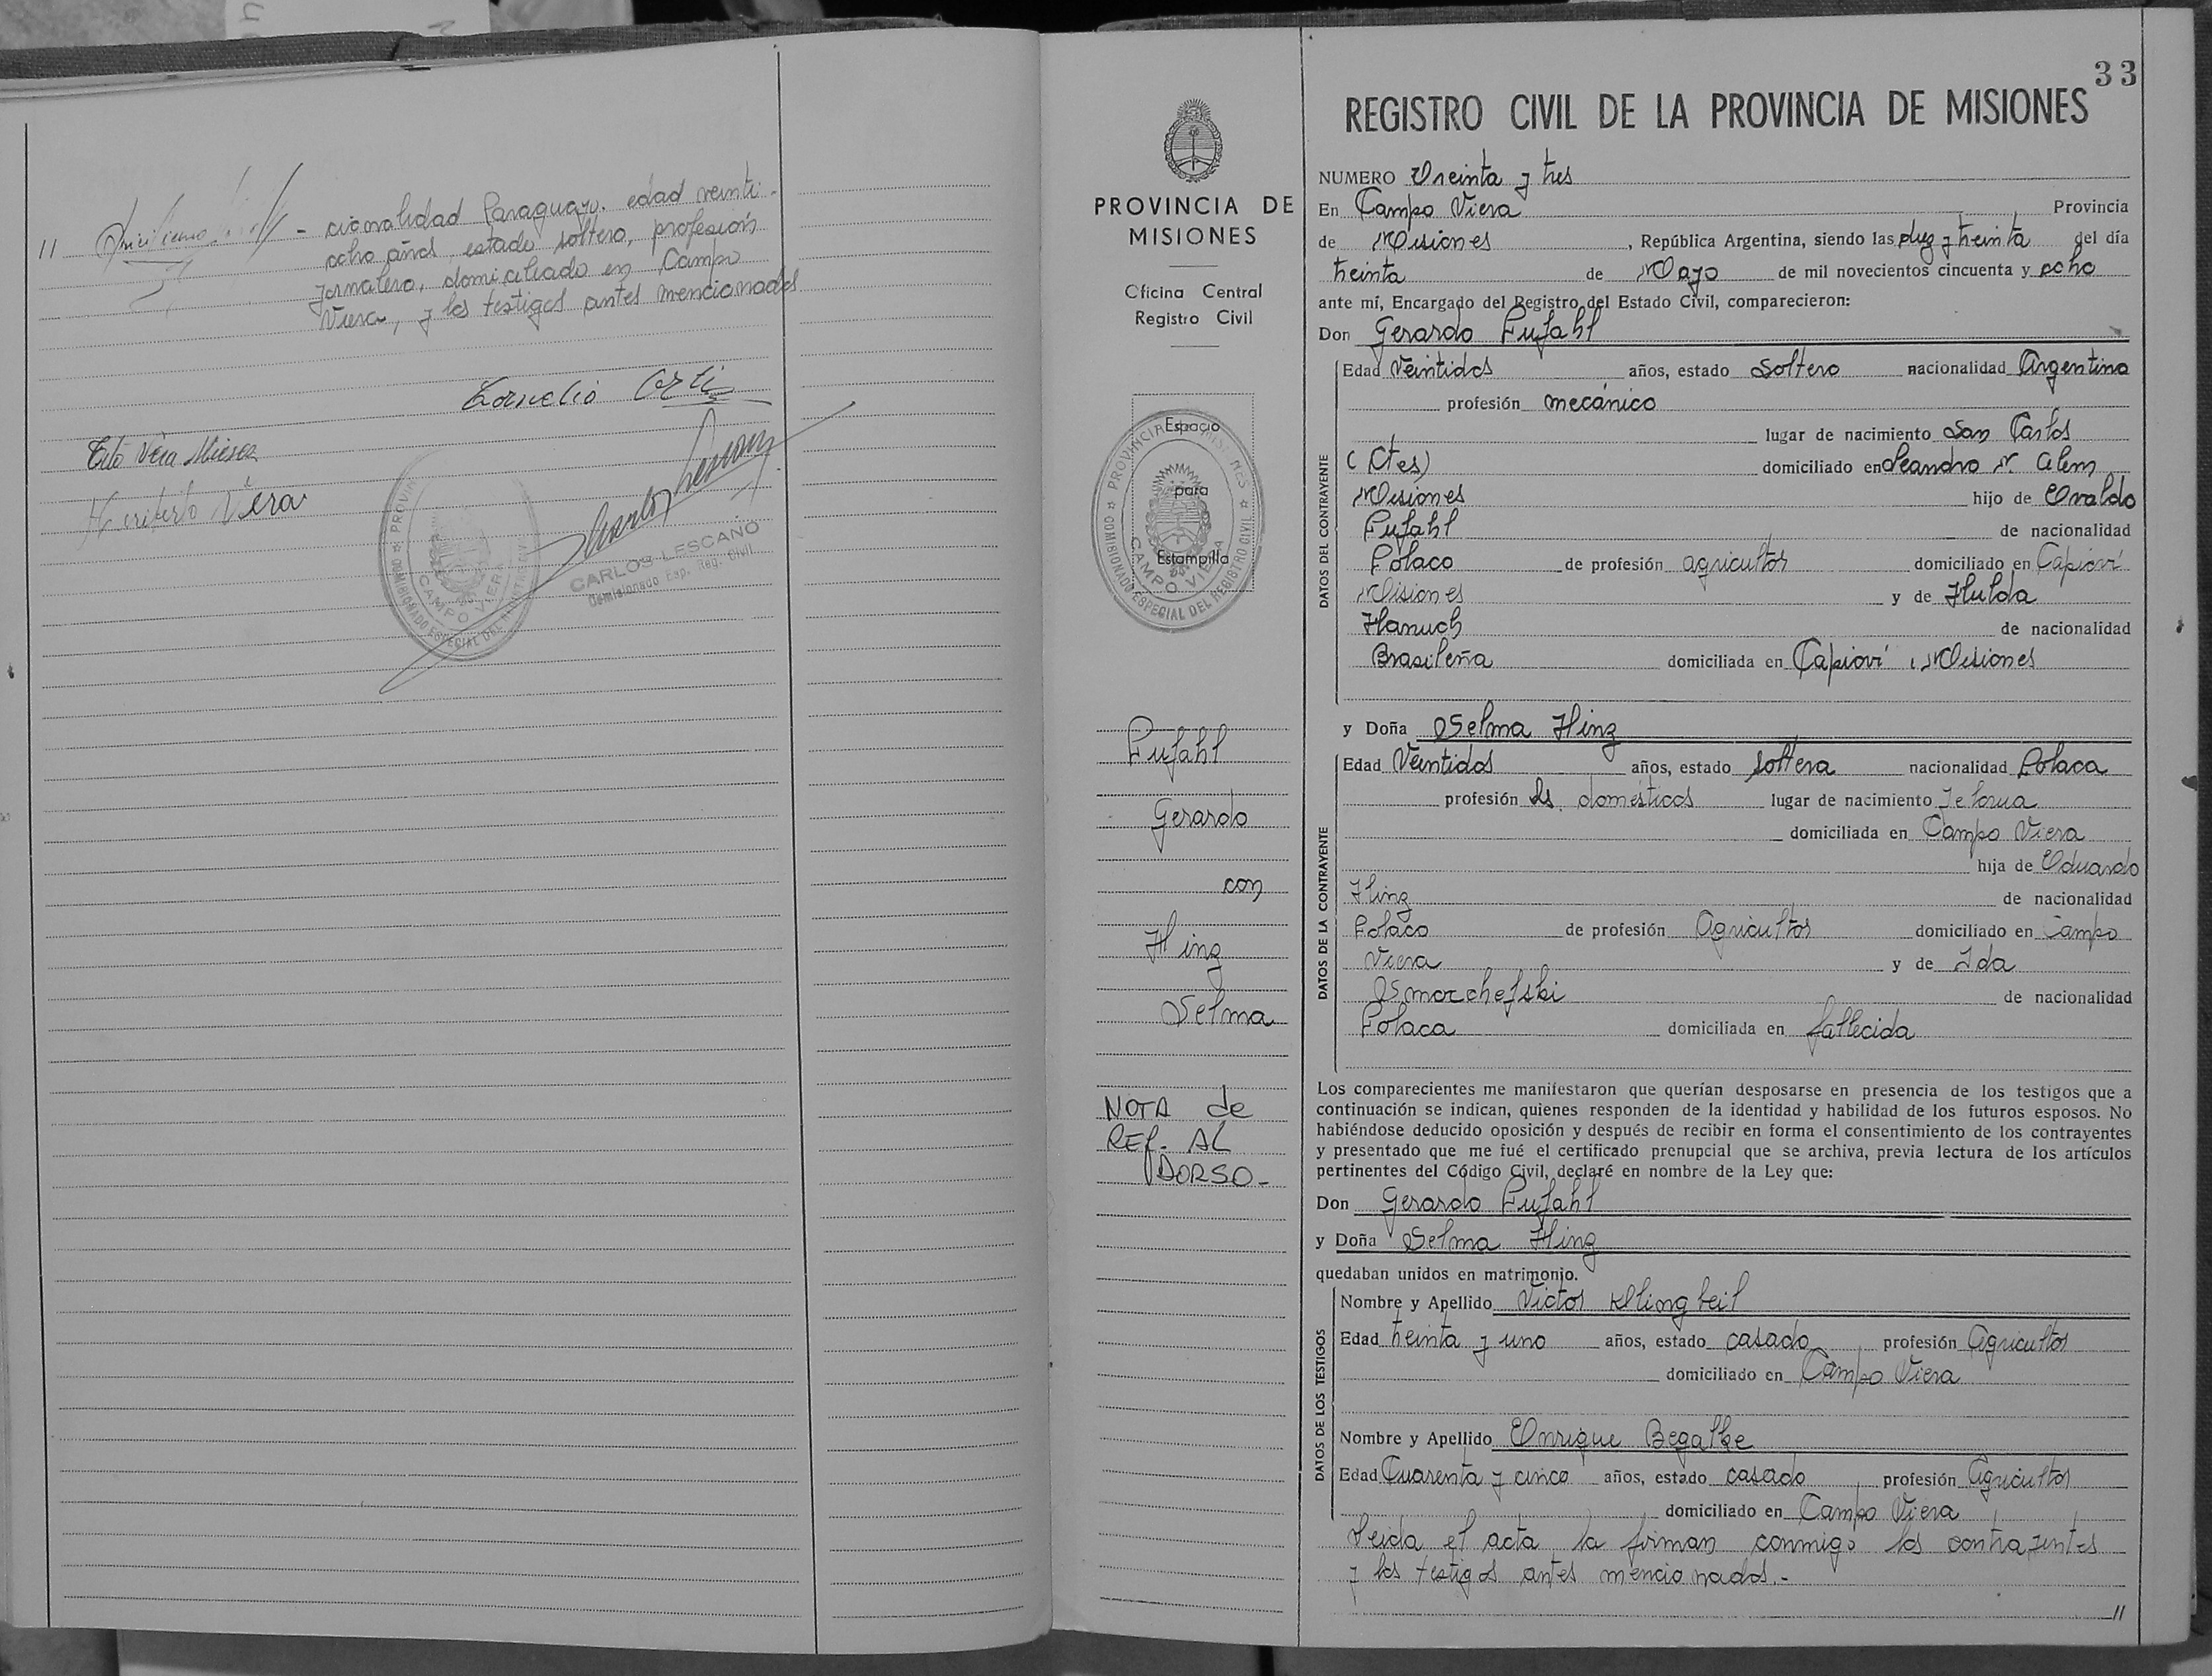 cionalidad Paraguayo. edad veinti-
ocho años, estado soltero, profesión
jornalero, domiciliado en Campo
Viera, y los testigos antes mencionados
Cornelio
Tito Vera
Viera
CARLOS LESCANO
Comisionado Esp. Reg. Civil
CAMPO VIERA
COMISIONADO ESPECIAL DEL REGISTRO CIVIL
PROVINCIA DE
MISIONES
Oficina Central
Registro Civil
Espacio
para
Estampilla
PROVINCIA DE MISIONES
CAMPO VIERA
COMISIONADO ESPECIAL DEL REGISTRO CIVIL
Pufahl
Gerardo
con
Hinz
Selma
NOTA de
REF. AL
DORSO-
33
REGISTRO CIVIL DE LA PROVINCIA DE MISIONES
NUMERO Treinta y tres
En Campo Viera Provincia
de Misiones, República Argentina, siendo las diez y treinta del día
treinta de Mayo de mil novecientos cincuenta y ocho
ante mí, Encargado del Registro del Estado Civil, comparecieron:
Don Gerardo Pufahl
DATOS DEL CONTRAYENTE
Edad Veintidos años, estado soltero nacionalidad Argentina
profesión mecánico
lugar de nacimiento San Carlos
(Ctes) domiciliado en Leandro N. Alem
Misiones hijo de Evaldo
Pufahl de nacionalidad
Polaco de profesión agricultor domiciliado en Capioví
Misiones y de Hulda
Hanuch de nacionalidad
Brasileña domiciliada en Capioví, Misiones
y Doña Selma Hinz
DATOS DE LA CONTRAYENTE
Edad Veintidos años, estado soltera nacionalidad Polaca
profesión Qs. domésticos lugar de nacimiento
domiciliada en Campo Viera
hija de Eduardo
Hinz de nacionalidad
Polaco de profesión Agricultor domiciliado en Campo
Viera y de Ida
Smorchefski de nacionalidad
Polaca domiciliada en fallecida
Los comparecientes me manifestaron que querían desposarse en presencia de los testigos que a
continuación se indican, quienes responden de la identidad y habilidad de los futuros esposos. No
habiéndose deducido oposición y después de recibir en forma el consentimiento de los contrayentes
y presentado que me fué el certificado prenupcial que se archiva, previa lectura de los artículos
pertinentes del Código Civil, declaré en nombre de la Ley que:
Don Gerardo Pufahl
y Doña Selma Hinz
quedaban unidos en matrimonio.
DATOS DE LOS TESTIGOS
Nombre y Apellido Victor Klingbeil
Edad treinta y uno años, estado casado profesión Agricultor
domiciliado en Campo Viera
Nombre y Apellido Enrique Begalke
Edad Cuarenta y cinco años, estado casado profesión Agricultor
domiciliado en Campo Viera
Leida el acta la firman conmigo los contrayentes
y los testigos antes mencionados.-
//